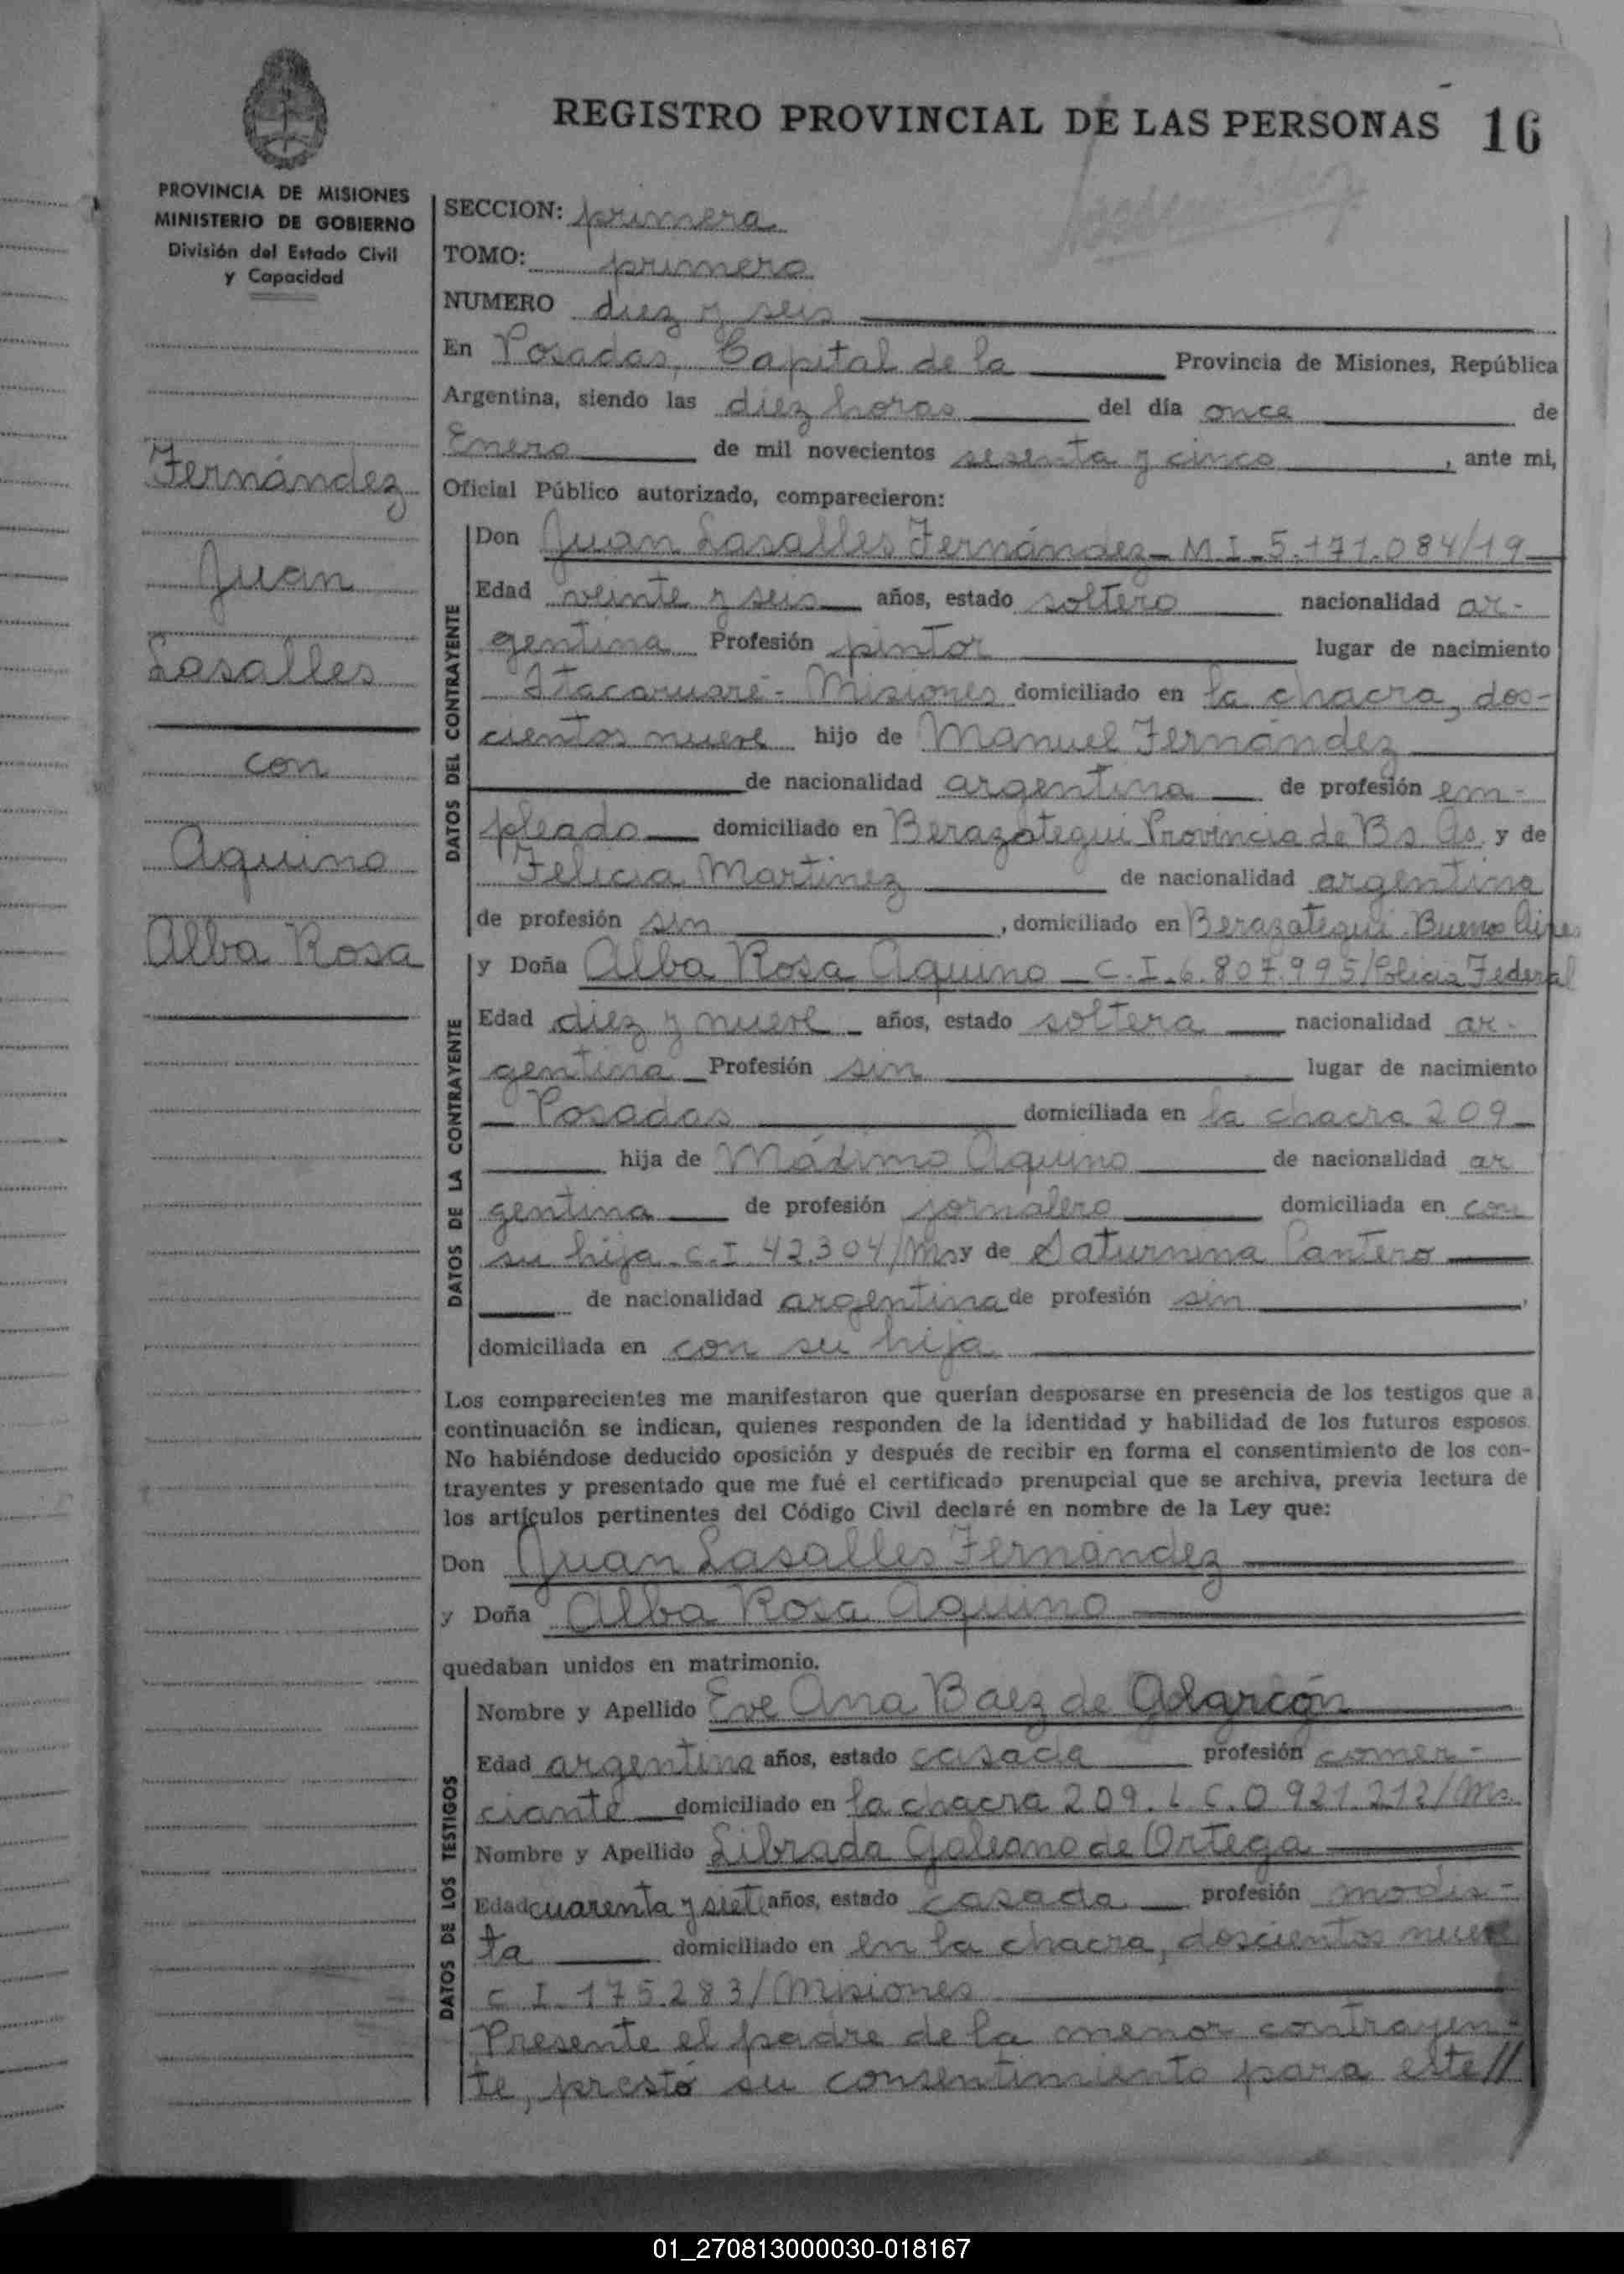 REGISTRO PROVINCIAL DE LAS PERSONAS 16
PROVINCIA DE MISIONES
MINISTERIO DE GOBIERNO
División del Estado Civil
y Capacidad
Fernández
Juan
Lasalles
con
Aquino
Alba Rosa
SECCION: primera
TOMO: primero
NUMERO diez y seis
En Posadas, Capital de la Provincia de Misiones, República
Argentina, siendo las diez horas del día once de
Enero de mil novecientos sesenta y cinco, ante mi,
Oficial Público autorizado, comparecieron:
DATOS DEL CONTRAYENTE
Don Juan Lasalles Fernández - M I - 5.171.084/19
Edad veinte y seis años, estado soltero nacionalidad ar-
gentina Profesión pintor lugar de nacimiento
Itacaruaré - Misiones domiciliado en la chacra, dos-
cientos nueve hijo de Manuel Fernández
de nacionalidad argentina de profesión em-
pleado domiciliado en Berazategui Provincia de Bs. As. y de
Felicia Martinez de nacionalidad argentina
de profesión sin, domiciliado en Berazategui. Buenos Aires
DATOS DE LA CONTRAYENTE
y Doña Alba Rosa Aquino - C.I. 6.807.995/Policia Federal
Edad diez y nueve años, estado soltera nacionalidad ar-
gentina Profesión sin lugar de nacimiento
Posadas domiciliada en la chacra 209
hija de Máximo Aquino de nacionalidad ar
gentina de profesión jornalero domiciliada en con
su hija - C.I 42.304/Ms y de Saturnina Cantero
de nacionalidad argentina de profesión sin,
domiciliada en con su hija
Los comparecientes me manifestaron que querían desposarse en presencia de los testigos que a
continuación se indican, quienes responden de la identidad y habilidad de los futuros esposos.
No habiéndose deducido oposición y después de recibir en forma el consentimiento de los con-
trayentes y presentado que me fué el certificado prenupcial que se archiva, previa lectura de
los artículos pertinentes del Código Civil declaré en nombre de la Ley que:
Don Juan Lasalles Fernández
y Doña Alba Rosa Aquino
quedaban unidos en matrimonio.
DATOS DE LOS TESTIGOS
Nombre y Apellido Eve Ana Baez de Alarcón
Edad argentina años, estado casada profesión comer-
ciante domiciliado en la chacra 209. L C. 0 921.212/Ms.
Nombre y Apellido Librada Galeano de Ortega
Edad cuarenta y siete años, estado casada profesión modis-
ta domiciliado en en la chacra, doscientos nueve
C I. 175.283/Misiones
Presente el padre de la menor contrayen-
te, prestó su consentimiento para este//
01_270813000030-018167